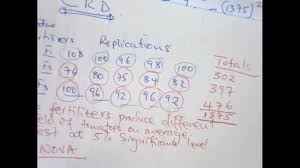 CRD
(1375)²
Replications
Totals
F₁ 108 100 96 98 100 502
F₂ 76 80 75 84 82 397
F₃ 100 96 92 96 92 476
1375
fertilizers produce different
of tomatoes on average.
at 5% Significance level